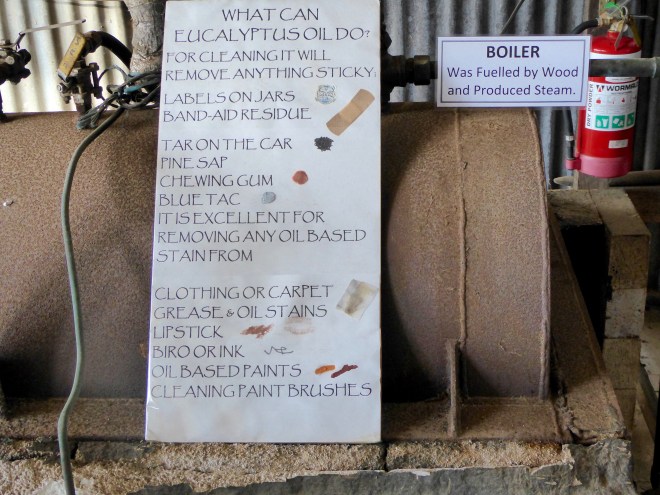 WHAT CAN
EUCALYPTUS OIL DO?
FOR CLEANING IT WILL
REMOVE ANYTHING STICKY:
LABELS ON JARS
BAND-AID RESIDUE
TAR ON THE CAR
PINE SAP
CHEWING GUM
BLUE TAC
IT IS EXCELLENT FOR
REMOVING ANY OIL BASED
STAIN FROM
CLOTHING OR CARPET
GREASE & OIL STAINS
LIPSTICK
BIRO OR INK
OIL BASED PAINTS
CLEANING PAINT BRUSHES
BOILER
Was Fuelled by Wood
and Produced Steam.
WORMALD
DRY POWDER